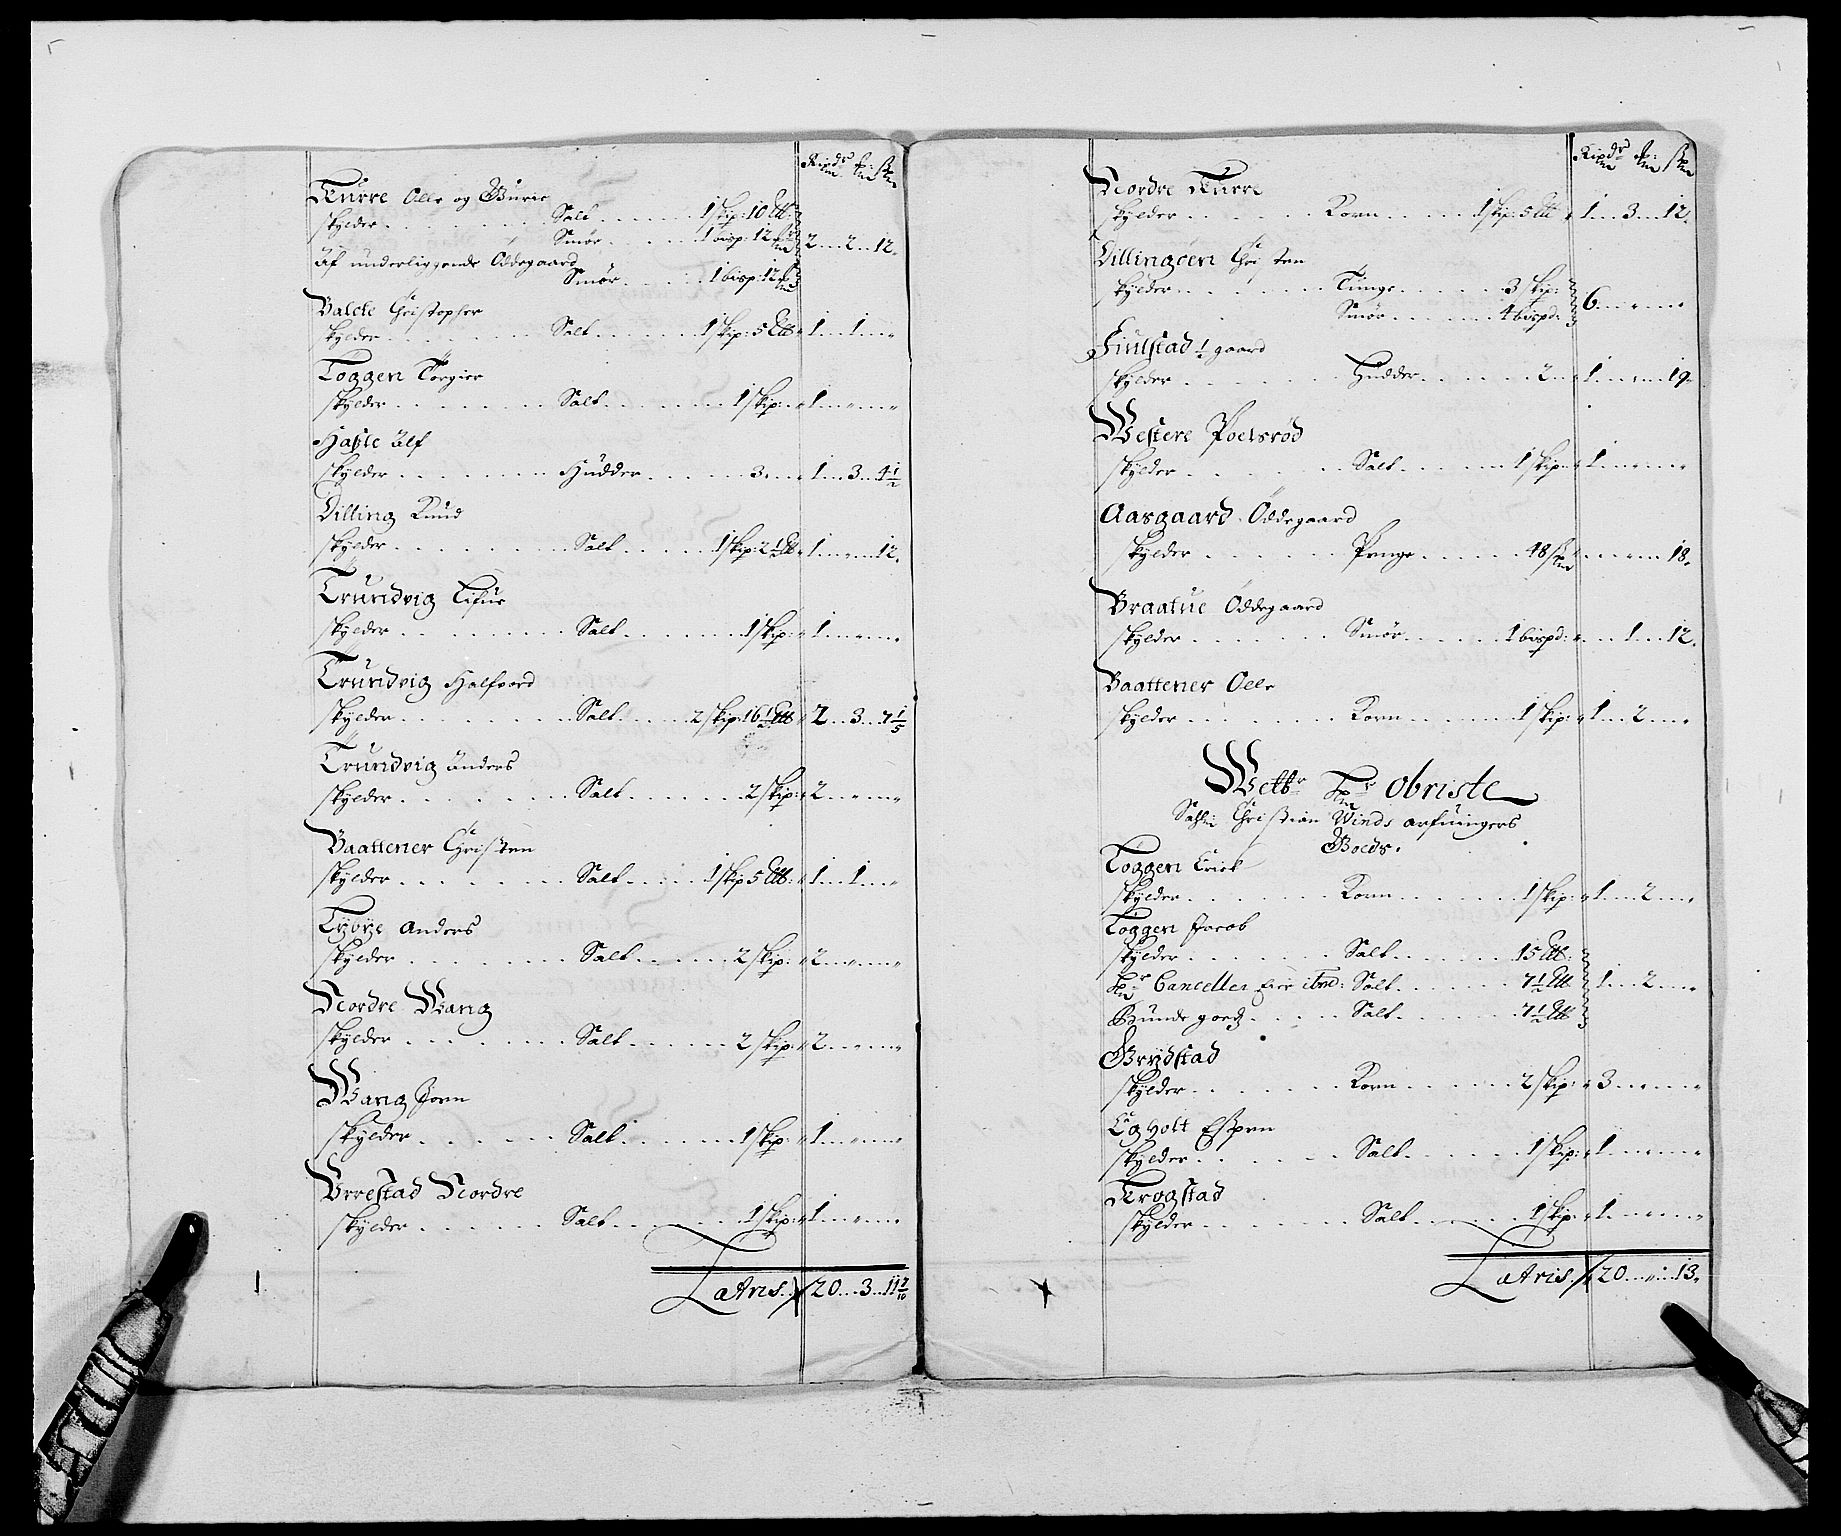 Rixdr. ß: sk
Kurre Olle og Guric
skylder . . . . . . Salt . . . . . 1 skip: 10 Lb:
Smør . . . . . 1 bisp: 12 2 . . 2 . . 12.
Af underliggende Ödegaard
Smør . . . . . 1 bisp: 12
Valcte Christopher
skylder . . . . . . Salt . . . . . 1 skip: 5 Lb 1 . . 1 . . "
Toggen Torgier
skylder . . . . . . Salt . . . . . 1 skip: 1 . . " . . "
Hasle Ulf
skylder . . . . . . Hudder . . . . . 3 . . 1 . . 3 . . 4 1/2
Dilling Knud
skylder . . . . . . Salt . . . . . 1 skip: 2 1/2 Lb 1 . . " . . 12.
Trundvig
skylder . . . . . . Salt . . . . . 1 skip: 1 . . " . . "
Trundvig Halfvord
skylder . . . . . . Salt . . . . . 2 skip: 16 1/2 Lb 2 . . 3 . . 7 1/5
Trundvig Anders
skylder . . . . . . Salt . . . . . 2 skip: 2 . . " . . "
Baattener Christen
skylder . . . . . . Salt . . . . . 1 skip 5 Lb: 1 . . 1 . . "
Tybye Anders
skylder . . . . . . Salt . . . . . 2 skip: 2 . . " . . "
Nordre Wang
skylder . . . . . . Salt . . . . . 2 skip: 2 . . " . . "
Wang Jorn
skylder . . . . . . Salt . . . . . 1 skip: 1 . . " . . "
Ørrestad Nordre
skylder . . . . . . Salt . . . . . 1 skip: 1 . . " . . "
Latris. 20 . . 3 . . 11 9/10
Rixdr. ß: sk
Nordre Kurre
skylder . . . . . . Korn . . . . . 1 skip: 5 Lb 1 . . 3 . . 12.
Dillingøen Christen
skylder . . . . . . Tunge . . . . . 3 skip: 6 . . " . . "
Smør . . . . . 4 bispd:
Fiulstad 1/2 gaard
skylder . . . . . . Hudder . . . . . 2 . . 1 . . " . . 19.
Westere Poelsrød
skylder . . . . . . Salt . . . . . 1 skip: 1 . . " . . "
Aasgaard Öddegaard
skylder . . . . . . Penge . . . . . 48 sk " . . " . . 18.
Braatue Öddegaard
skylder . . . . . . Smør . . . . . 1 bispd: " . . 1 . . 12.
Baattener Olle
skylder . . . . . . Korn . . . . . 1 skip: 1 . . 2 . . "
Welbr Hr Obriste
Salig Christian Winds arfuingers
Goeds.
Toggen Erick
skylder . . . . . . Korn . . . . . 1 skip: 1 . . 2 . . "
Toggen Jacob
skylder . . . . . . Salt . . . . . 15 Lb:
Hr Canceller Salt . . . . . 7 1/2 Lb 1 . . 2 . . "
Bunde goeds . . . . . Salt . . . . . 7 1/2 Lb
Grydstad
skylder . . . . . . Korn . . . . . 2 skip: 3 . . " . . "
Egholt Espen
skylder . . . . . . Salt . . . . . 1 skip: 1 . . " . . "
Krogstad
skylder . . . . . . Salt . . . . . 1 skip: 1 . . " . . "
Latris. 20 . . " . . 13.